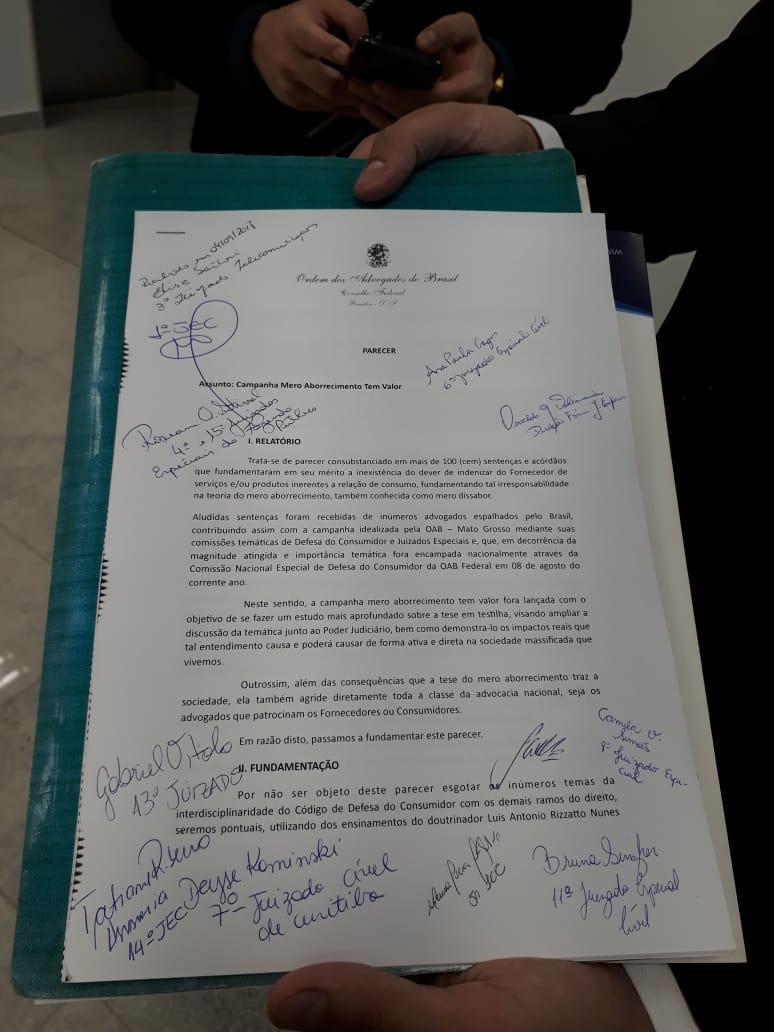 Recebido em 04/09/2018
Elise
3º Juizado Telecomunicações
1º JEC
Ordem dos Advogados do Brasil
Conselho Federal
Brasília - D.F.
PARECER
Ana Paula
6º Juizado Especial Cível
Assunto: Campanha Mero Aborrecimento Tem Valor
Osvaldo
4º e 15º Juizados
Especiais da Fazenda
Pública
I. RELATÓRIO
Trata-se de parecer consubstanciado em mais de 100 (cem) sentenças e acórdãos
que fundamentaram em seu mérito a inexistência do dever de indenizar do Fornecedor de
serviços e/ou produtos inerentes a relação de consumo, fundamentando tal irresponsabilidade
na teoria do mero aborrecimento, também conhecida como mero dissabor.
Aludidas sentenças foram recebidas de inúmeros advogados espalhados pelo Brasil,
contribuindo assim com a campanha idealizada pela OAB – Mato Grosso mediante suas
comissões temáticas de Defesa do Consumidor e Juizados Especiais e, que, em decorrência da
magnitude atingida e importância temática fora encampada nacionalmente através da
Comissão Nacional Especial de Defesa do Consumidor da OAB Federal em 08 de agosto do
corrente ano.
Neste sentido, a campanha mero aborrecimento tem valor fora lançada com o
objetivo de se fazer um estudo mais aprofundado sobre a tese em testilha, visando ampliar a
discussão da temática junto ao Poder Judiciário, bem como demonstra-lo os impactos reais que
tal entendimento causa e poderá causar de forma ativa e direta na sociedade massificada que
vivemos.
Outrossim, além das consequências que a tese do mero aborrecimento traz a
sociedade, ela também agride diretamente toda a classe da advocacia nacional, seja os
advogados que patrocinam os Fornecedores ou Consumidores.
Em razão disto, passamos a fundamentar este parecer.
Gabriel Vitola
13º JUIZADO
Camila V.
Simas
8º Juizado Espe-
cial
II. FUNDAMENTAÇÃO
Por não ser objeto deste parecer esgotar os inúmeros temas da
interdisciplinaridade do Código de Defesa do Consumidor com os demais ramos do direito,
seremos pontuais, utilizando dos ensinamentos do doutrinador Luis Antonio Rizzatto Nunes
14º JEC
Deyse Kominski
7º Juizado Cível
de Curitiba
5º JEC
Bruna
11º Juizado Especial
Cível